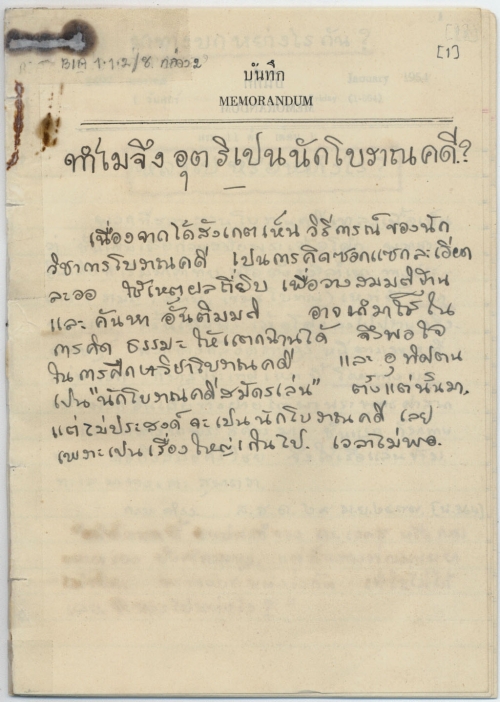 [1]
BIA 1.1.2/8 กล่อง 2
บันทึก
MEMORANDUM
ทำไมจึง อุตริเปนนักโบราณคดี?
เนื่องจากได้สังเกตเห็น วิธีการณ์ของนัก
วิชาการโบราณคดี เปนการคิดซอกแซกละเอียด
ละออ ใช้เหตุผลถี่ยิบ เพื่อวางสมมสฐาน
และ ค้นหา อั้นติมมส อาจเอามาใช้ใน
การคิด ธรรมะ ให้แตกฉานได้ จึงพอใจ
ในการศึกษาวิชาโบราณคดี และ อุทิศตน
เปน "นักโบราณคดีสมัครเล่น" ตั้งแต่นั้นมา.
แต่ไม่ประสงค์ จะเปนนักโบราณคดี เลย
เพราะเปนเรื่องใหญ่เกินไป. เวลาไม่พอ.